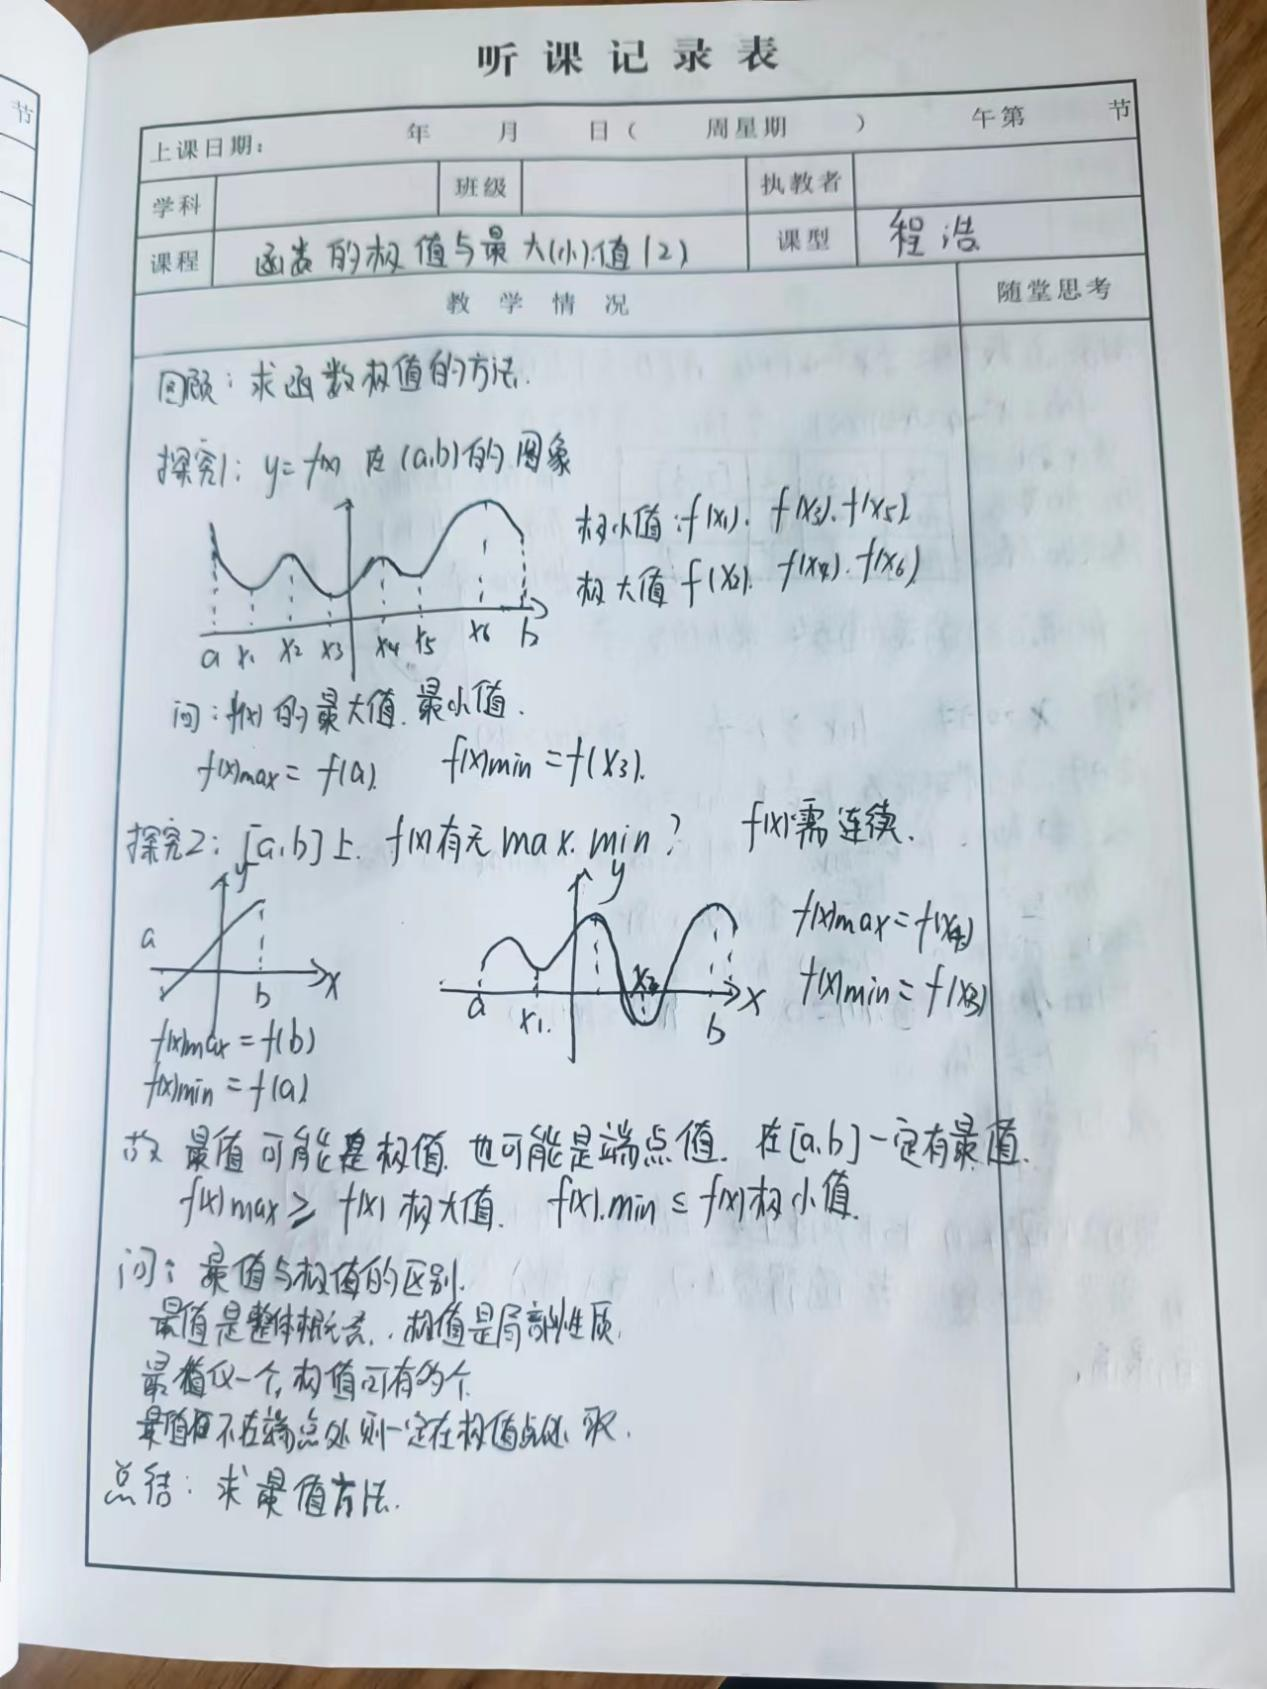 节
听课记录表
上课日期： 年 月 日（ 周星期 ） 午第 节
学科 班级 执教者
课程 函数的极值与最大(小)值(2) 课型 程浩
教学情况 随堂思考
回顾：求函数极值的方法.
探究1：y=f(x) 在(a,b)的图象
极小值：f(x1). f(x3).f(x5).
极大值 f(x2). f(x4).f(x6).
a x1 x2 x3 x4 x5 x6 b
问：f(x)的最大值.最小值.
f(x)max=f(a). f(x)min=f(x3).
探究2：[a,b]上. f(x)有无max.min? f(x)需连续.
y a b x
y a x1. b x
f(x)max=f(x4)
f(x)min=f(x3)
f(x)max=f(b)
f(x)min=f(a).
故 最值可能是极值.也可能是端点值. 在[a,b]一定有最值.
f(x)max≥f(x)极大值. f(x).min≤f(x)极小值.
问：最值与极值的区别.
最值是整体概念.,极值是局部性质.
最值仅一个,极值可有多个.
最值不在端点处则一定在极值点处取.
总结：求最值方法.